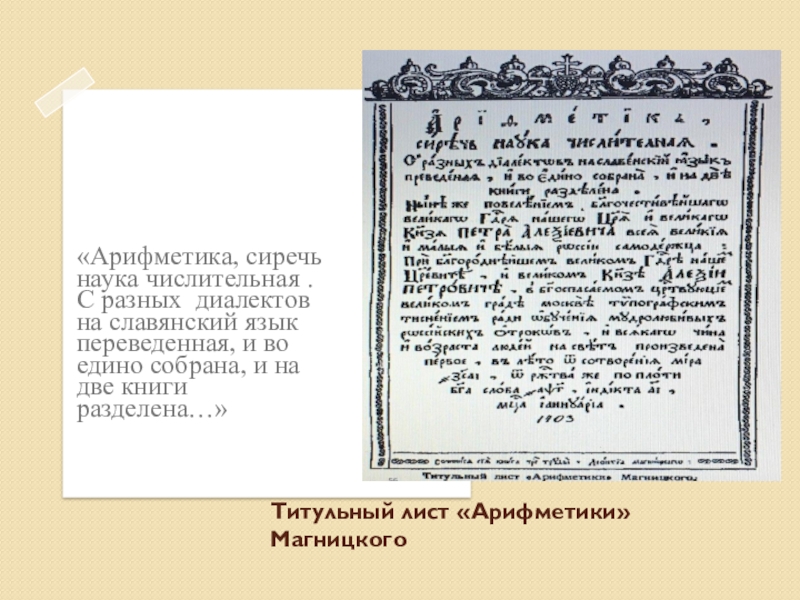 «Арифметика, сиречь
наука числительная .
С разных диалектов
на славянский язык
переведенная, и во
едино собрана, и на
две книги
разделена…»
А҆риѳме́тїка,
сирѣ́чь наꙋ́ка числи́телная .
С̾ ра́зныхъ дїале́ктѡвъ на славе́нскїй ꙗ҆зы́къ
преведе́ная , и҆ во є҆ди́но собрана̀ , и҆ на двѣ̀
книги раздѣле́на .
Нн҃ѣ же повелѣ́нїемъ бл҃гочести́вѣйшагѡ
вели́кагѡ Гдⷭ҇рѧ на́шегѡ Цр҃ѧ̀ и҆ вели́кагѡ
Кн҃зѧ ПЕТРА̀ АЛЕѮІ́ЕВИЧА всеѧ̀ вели́кїѧ
и҆ ма́лыѧ и҆ бѣ́лыѧ рѡссі́и самоде́ржца :
Прѝ бл҃горо́днѣйшемъ вели́комъ Гдⷭ҇рѣ на́шемъ
Цр҃е́вичѣ , и҆ вели́комъ Кн҃зѣ АЛЕѮІ́И
ПЕТРО́ВИЧѢ , в̾ бг҃оспаса́емомъ цр҃ствꙋющемъ
вели́комъ гра́дѣ москвѣ̀ тѷпогра́фскимъ
тисне́нїемъ ра́ди ѡ҆бꙋче́нїѧ мꙋдролюби́выхъ
рѡссі́йскихъ ѻ҆́трокѡвъ , и҆ всѧ́кагѡ чи́на
и҆ во́зраста люде́й на свѣ́тъ произведена̀
пе́рвое , въ лѣ́то ѿ сотворе́нїѧ мі́ра
҂зса҃і , ѿ ржⷭ҇тва̀ же по пло́ти
бг҃а сло́ва ҂аѱг҃ , їндїкта а҃і ,
мцⷭ҇а і҆аннꙋа́рїа .
1703
Сочинисѧ сїѧ̀ кни́га чрез̾ трꙋды̀ леѻ́нтїа магни́цкагѡ .
Титульный лист «Арифметики» Магницкого.
Титульный лист «Арифметики»
Магницкого